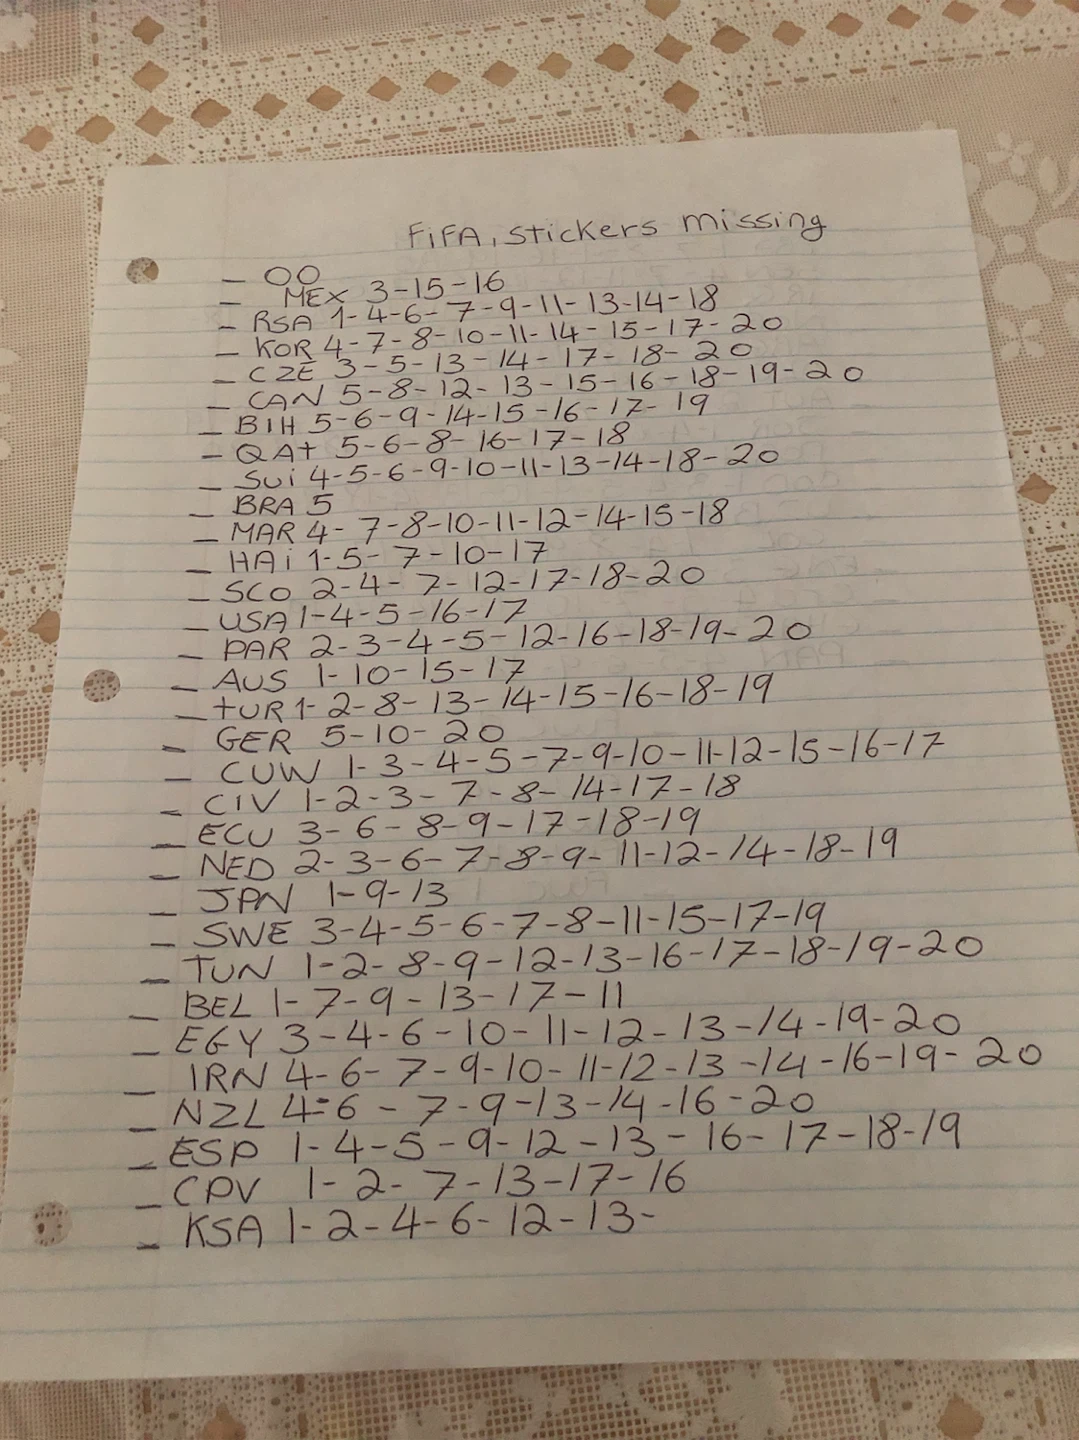 FiFA, Stickers Missing
- 00
- MEX 3-15-16
- RSA 1-4-6-7-9-11-13-14-18
- KOR 4-7-8-10-11-14-15-17-20
- CZE 3-5-13-14-17-18-20
- CAN 5-8-12-13-15-16-18-19-20
- BIH 5-6-9-14-15-16-17-19
- QAt 5-6-8-16-17-18
- Sui 4-5-6-9-10-11-13-14-18-20
- BRA 5
- MAR 4-7-8-10-11-12-14-15-18
- HAi 1-5-7-10-17
- SCO 2-4-7-12-17-18-20
- USA 1-4-5-16-17
- PAR 2-3-4-5-12-16-18-19-20
- AUS 1-10-15-17
- tUR 1-2-8-13-14-15-16-18-19
- GER 5-10-20
- CUW 1-3-4-5-7-9-10-11-12-15-16-17
- CIV 1-2-3-7-8-14-17-18
- ECU 3-6-8-9-17-18-19
- NED 2-3-6-7-8-9-11-12-14-18-19
- JPN 1-9-13
- SWE 3-4-5-6-7-8-11-15-17-19
- TUN 1-2-8-9-12-13-16-17-18-19-20
- BEL 1-7-9-13-17-11
- EGY 3-4-6-10-11-12-13-14-19-20
- IRN 4-6-7-9-10-11-12-13-14-16-19-20
- NZL 4-6-7-9-13-14-16-20
- ESP 1-4-5-9-12-13-16-17-18-19
- CPV 1-2-7-13-17-16
- KSA 1-2-4-6-12-13-